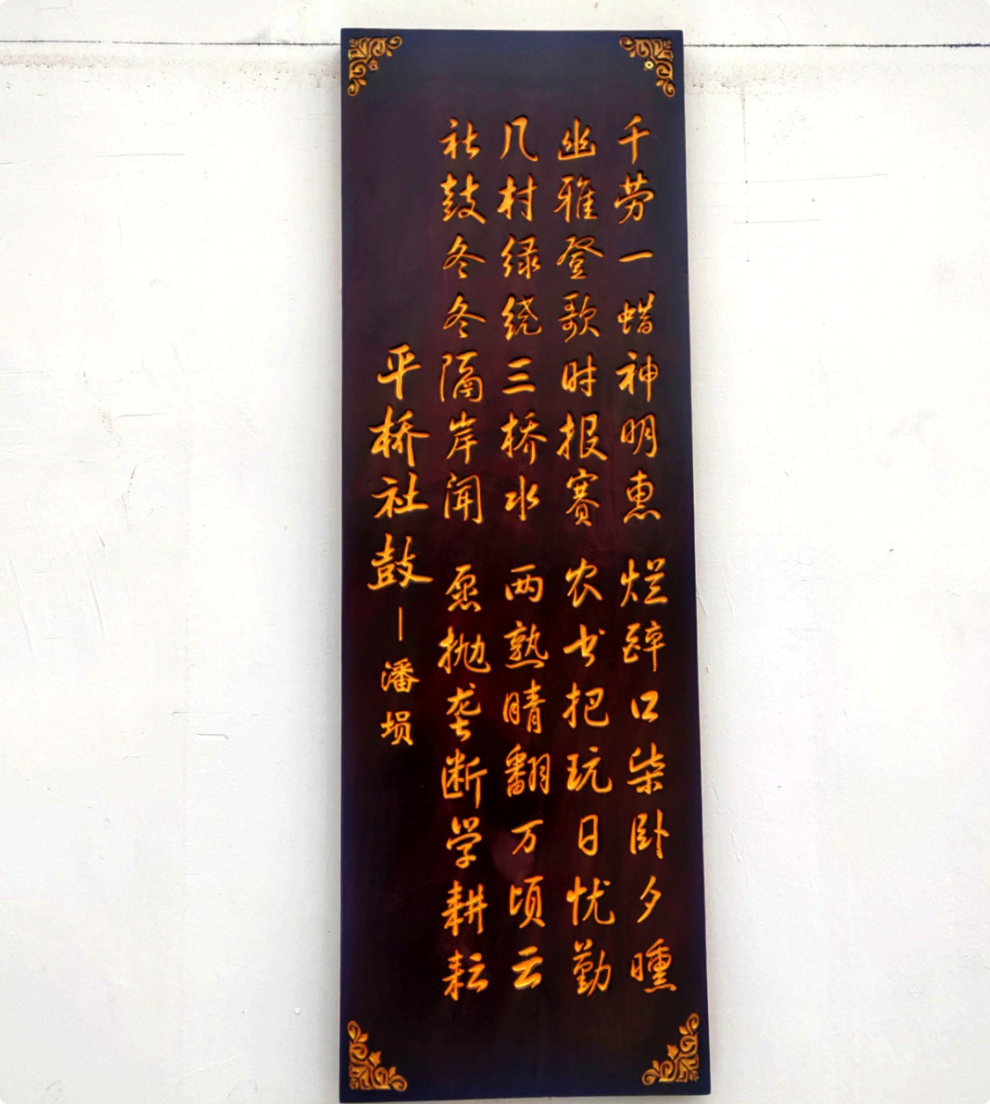 平桥社鼓—潘埙
社鼓冬冬隔岸闻 愿抛垄断学耕耘
几村绿绕三桥水 两熟晴翻万顷云
幽雅登歌时报赛 农书把玩日忧勤
千劳一蜡神明惠 烂醉口柴卧夕曛